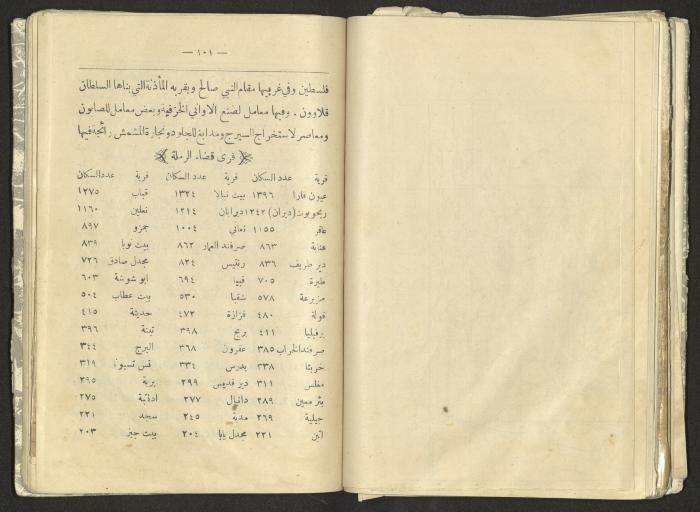 — ١٠١ —
فلسطين وفي غربيها مقام النبي صالح وبقربه المأذنة التي بناها السلطان
قلاوون . وفيها معامل لصنع الاواني الخزفية وبعض معامل للصابون
ومعاصر لاستخراج السيرج ومدابغ للجلود وتجارة المشمش رائجة فيها
قرى قضاء الرملة
قرية عدد السكان قرية عدد السكان قرية عدد السكان
عيون قارا ١٣٩٦ بيت نبالا ١٣٢٤ قباب ١٢٧٥
ريحوبوت (ديران) ١٢٤٢ ديرابان ١٢١٤ نعلين ١١٦٠
عاقر ١١٥٥ نعاني ١٠٠٤ جمزو ٨٩٧
عنابة ٨٦٣ صرفند العمار ٨٦٢ بيت نوبا ٨٣٩
دير طريف ٨٣٦ رنتيس ٨٢٤ مجدل صادق ٧٢٦
طيرة ٧٠٥ قبيا ٦٩٤ ابو شوشة ٦٠٣
مزيرعة ٥٧٨ شقبا ٥٣٠ بيت عطاب ٥٠٤
قولة ٤٨٠ قزازة ٤٧٢ حديثة ٤١٥
برفيليا ٤١١ بريج ٣٩٨ تينة ٣٩٦
صرفند الخراب ٣٨٥ عقرون ٣٦٨ البرج ٣٤٤
خربثا ٣٣٨ بدرس ٣٣٤ نس تسيونا ٣١٩
مغلس ٣١١ دير قديس ٢٩٩ برية ٢٩٥
بئر معين ٢٨٩ دانيال ٢٧٧ اذنبة ٢٧٥
جيلية ٢٦٩ مدية ٢٤٥ سجد ٢٢١
لتين ٢٢١ مجدل يابا ٢٠٤ بيت جيز ٢٠٣